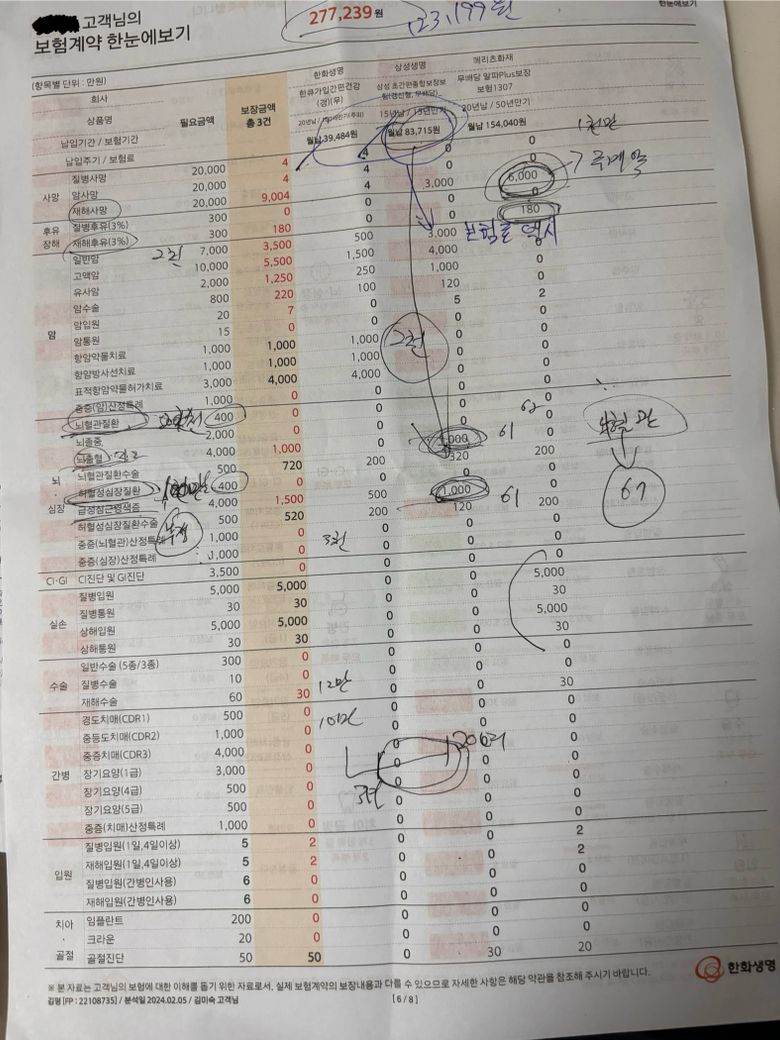 고객님의
보험계약 한눈에보기
277,239원
23,199원
한눈에보기
(항목별 단위 : 만원)
회사
상품명
납입기간 / 보험기간
납입주기 / 보험료
필요금액
보장금액
총 3건
한화생명
20년납
월납 39,484원
삼성생명
15년납 / 15년만기
월납 83,715원
메리츠화재
무배당 알파Plus보장
보험1307
20년납 / 50년만기
월납 154,040원
1천만
사망
질병사망 20,000 4 4 0 0
암사망 20,000 4 4 0 0
재해사망 20,000 9,004 4 3,000 6,000
후유
장해
질병후유(3%) 300 0 0 0 0
재해후유(3%) 300 180 0 0 180
보험료
2천
암
일반암 7,000 3,500 500 3,000 0
고액암 10,000 5,500 1,500 4,000 0
유사암 2,000 1,250 250 1,000 0
암수술 800 220 100 120 0
암입원 20 7 0 5 2
암통원 15 0 0 0 0
항암약물치료 1,000 1,000 1,000 0 0
항암방사선치료 1,000 1,000 1,000 0 0
표적항암약물허가치료 3,000 4,000 4,000 0 0
중증(암)산정특례 1,000 0 0 0 0
2천
뇌
심장
뇌혈관질환 400 0 0 0 0
뇌졸중 2,000 0 0 0 0
뇌출혈 4,000 1,000 0 1,000 0
뇌혈관질환수술 500 720 200 320 200
허혈성심장질환 400 0 0 0 0
급성심근경색증 4,000 1,500 500 1,000 0
허혈성심장질환수술 500 520 200 120 200
중증(뇌혈관)산정특례 1,000 0 0 0
중증(심장)산정특례 1,000 0 0 0
62
61
61
뇌혈관
61
3천
CI·GI
CI진단 및 GI진단 3,500 0 0 0 0
실손
질병입원 5,000 5,000 0 0 5,000
질병통원 30 30 0 0 30
상해입원 5,000 5,000 0 0 5,000
상해통원 30 30 0 0 30
수술
일반수술 (5종/3종) 300 0 0 0 0
질병수술 10 0 0 0 0
재해수술 60 30 0 0 30
12만
10만
간병
경도치매(CDR1) 500 0 0 0 0
중등도치매(CDR2) 1,000 0 0 0 0
중증치매(CDR3) 4,000 0 0 0 0
장기요양(1급) 3,000 0 0 0 0
장기요양(4급) 500 0 0 0 0
장기요양(5급) 500 0 0 0 0
중증(치매)산정특례 1,000 0 0 0 0
입원
질병입원(1일,4일이상) 5 2 0 0 2
재해입원(1일,4일이상) 5 2 0 0 2
질병입원(간병인사용) 6 0 0 0 0
재해입원(간병인사용) 6 0 0 0 0
치아
·
골절
임플란트 200 0 0 0 0
크라운 20 0 0 0 0
골절진단 50 50 0 30 20
※ 본 자료는 고객님의 보험에 대한 이해를 돕기 위한 자료로서, 실제 보험계약의 보장내용과 다를 수 있으므로 자세한 사항은 해당 약관을 참조해 주시기 바랍니다.
김평 [FP : 22108735] / 분석일 2024.02.05 / 김미숙 고객님
[ 6 / 8 ]
한화생명